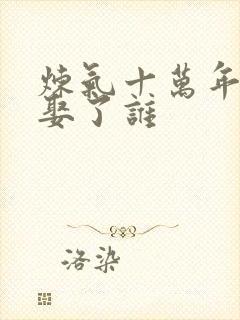 煉氣十萬年
娶了誰
洛染